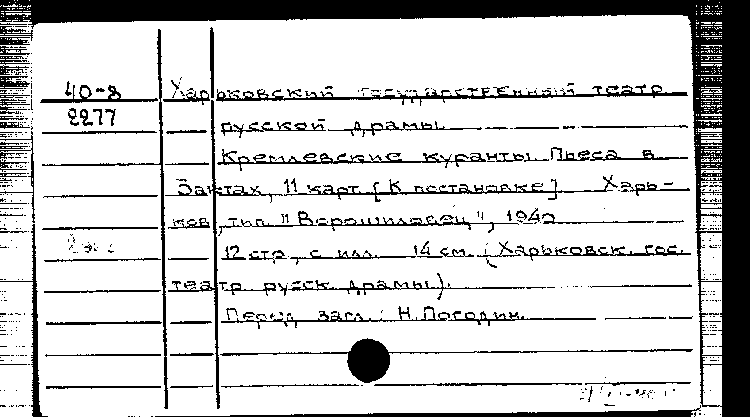 40-8 Харьковский государственный театр
2277 русской драмы.
Кремлевские куранты. Пьеса в
3 актах, 11 карт. [К постановке] Харь-
ков, тип. "Ворошиловец", 1940
12 стр., с илл. 14 см. (Харьковск. гос.
театр русск. драмы).
Перед загл.: Н. Погодин.